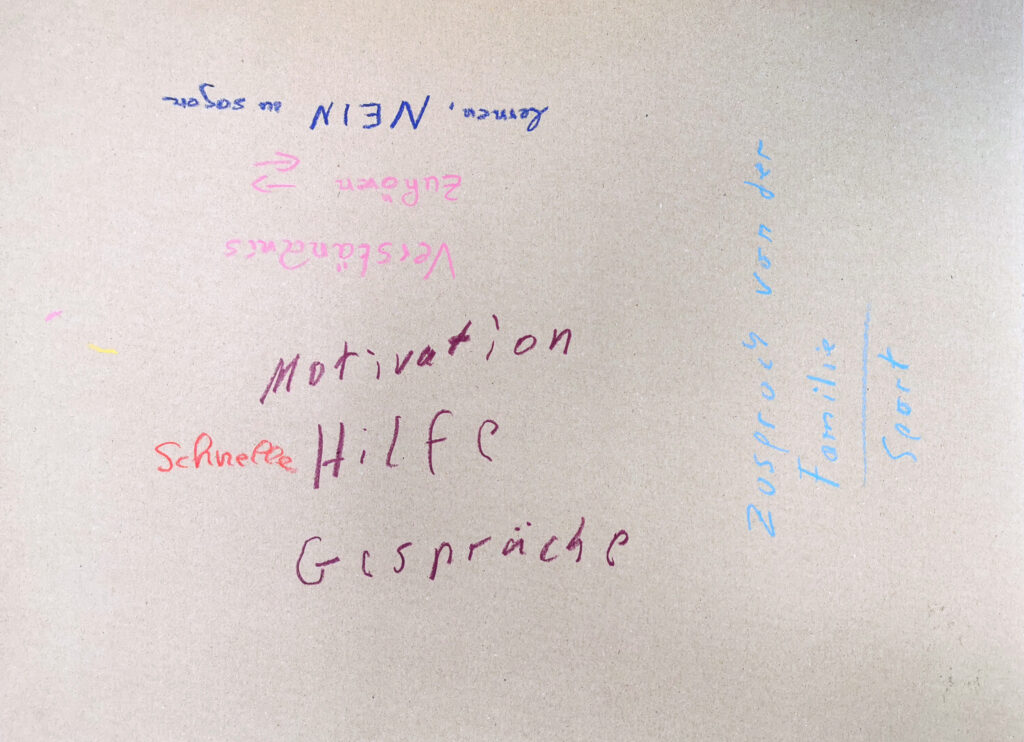 lernen, NEIN zu sagen
Zuhören ⇐ →
Verständnis
Motivation
Schnelle Hilfe
Gespräche
Zuspruch von der
Familie
Sport